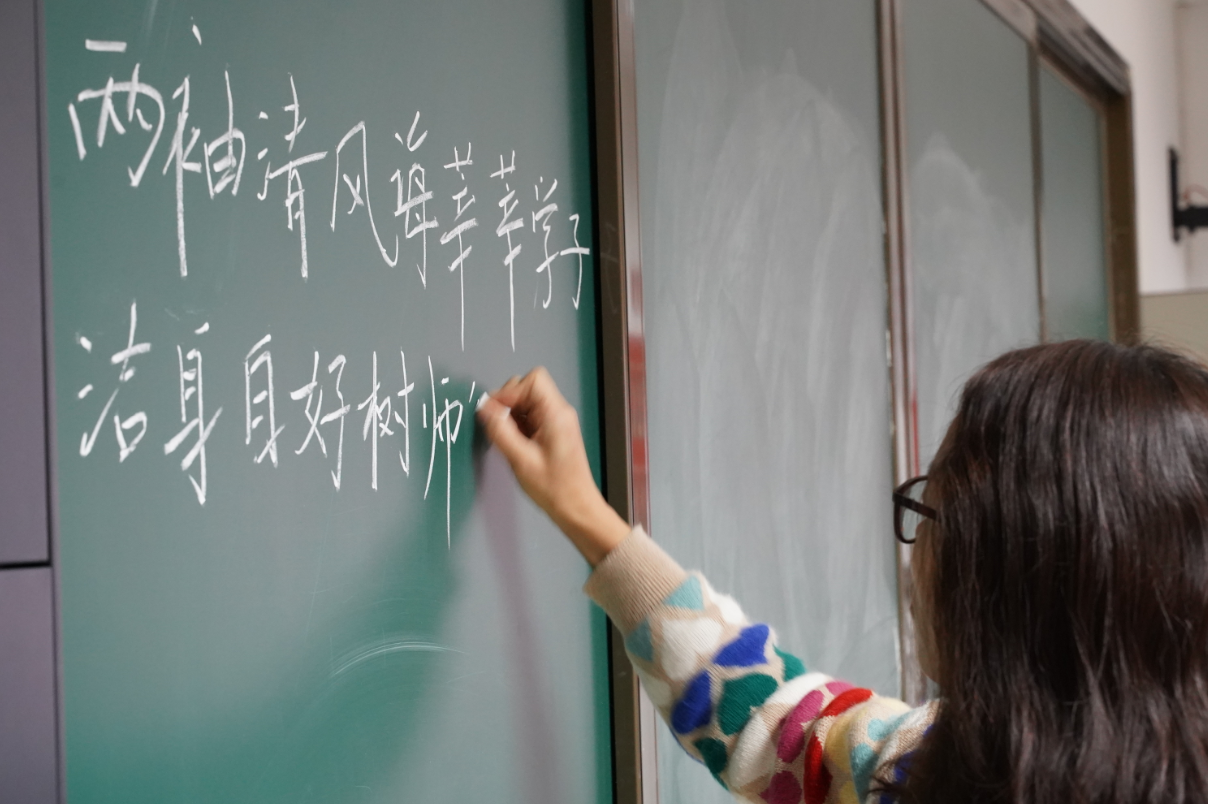 两袖清风诲莘莘学子
洁身自好树师